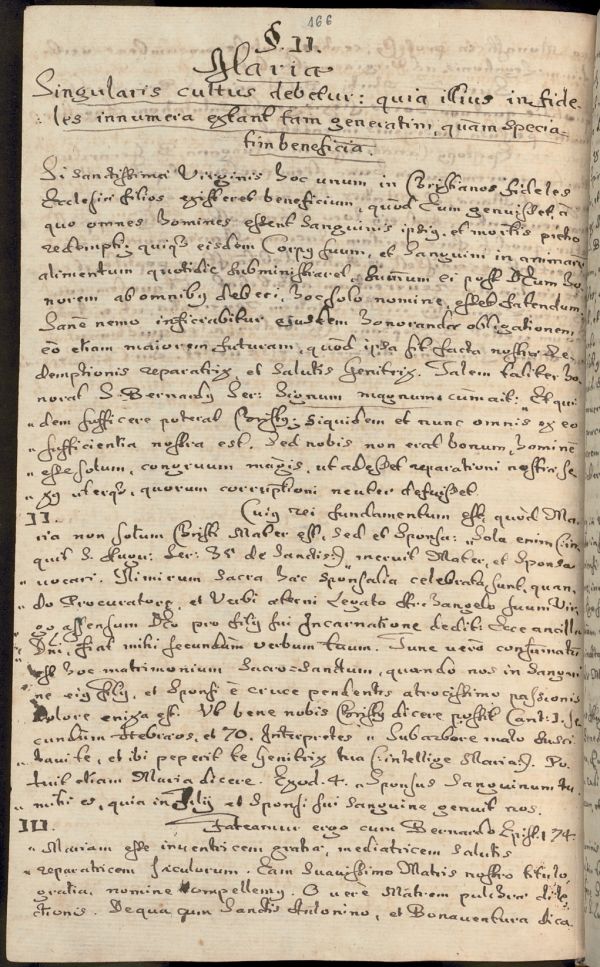 166
§. II.
Maria
Singularis cultus debetur: quia illius in fide-
les innumera extant tam generatim, quàm specia-
tim beneficia.
Si Sanctissimae Virginis hoc unum in Christianos fideles
Ecclesiae filios existeret beneficium, quòd Eum genuisset, à
quo omnes homines essent sanguinis ipsiꝰ, et mortis pretio
redempti; quiqꝫ eisdem Corpꝰ suum, et sanguinē in animarū
alimentum quotidie subministraret, summum ei post Deum ho-
norem ab omnibꝰ deberi, hoc solo nomine, esset fatendum.
Sanè nemo inficiabitur ejusdem honorandae obligationem
eò etiam maiorem futuram, quòd ipsa sit facta nostrae Re-
demptionis reparatrix, et salutis Genitrix. Talem taliter ho-
norat S. Bernardꝰ Ser: Signum magnum: cùm ait: Et qui-
" dem sufficere poterat Christꝰ; siquidem et nunc omnis ex eo
" sufficientia nostra est. Sed nobis non erat bonum, hominē
" esse solum, congruum magis, ut adesset reparationi nostrae se-
" xꝰ uterqꝫ, quorum corruptioni neuter defuisset.
II. Cuiꝰ rei fundamentum est; quòd Ma-
ria non solùm Christi Mater est, sed et Sponsa: "Sola enim (in-
quit S. Augu: Ser: 35 de Sanctis) meruit Mater, et Sponsa
" vocari. Nimirum sacra haec sponsalia celebrata sunt, quan-
do Procuratore, et Verbi aeterni Legato Archangelo suum Vir-
go assensum Deo pro Filij sui Incarnatione dedit: Ecce ancilla
" Dni, fiat mihi secundùm verbum tuum. Tunc verò consumatū
est hoc matrimonium sacro-sanctum, quando nos in sangui-
ne eiꝰ Filij, et Sponsi è cruce pendentis atrocissimo passionis
dolore enixa est. Ut bene nobis Christꝰ dicere possit Cant: I. Se-
cundùm Hebraeos, et 70. Interpretes " Sub arbore malo susci-
" tavi te, et ibi peperit te Genitrix tua (intellige Maria). Po-
tuit etiam Maria dicere. Exod. 4. " Sponsus sanguinum tu
" mihi es, quia in Filij et Sponsi sui sanguine genuit nos.
III. Fateamur ergo cum Bernardo Epist. 174.
" Mariam esse inventricem gratiae, mediatricem salutis
" reparatricem saeculorum. Eam suavissimo Matris nostrae titulo,
gratia, nomine compellemꝰ. O verè Matrem pulchrae dile-
ctionis. De qua cum Sanctis Antonino, et Bonaventura dica-